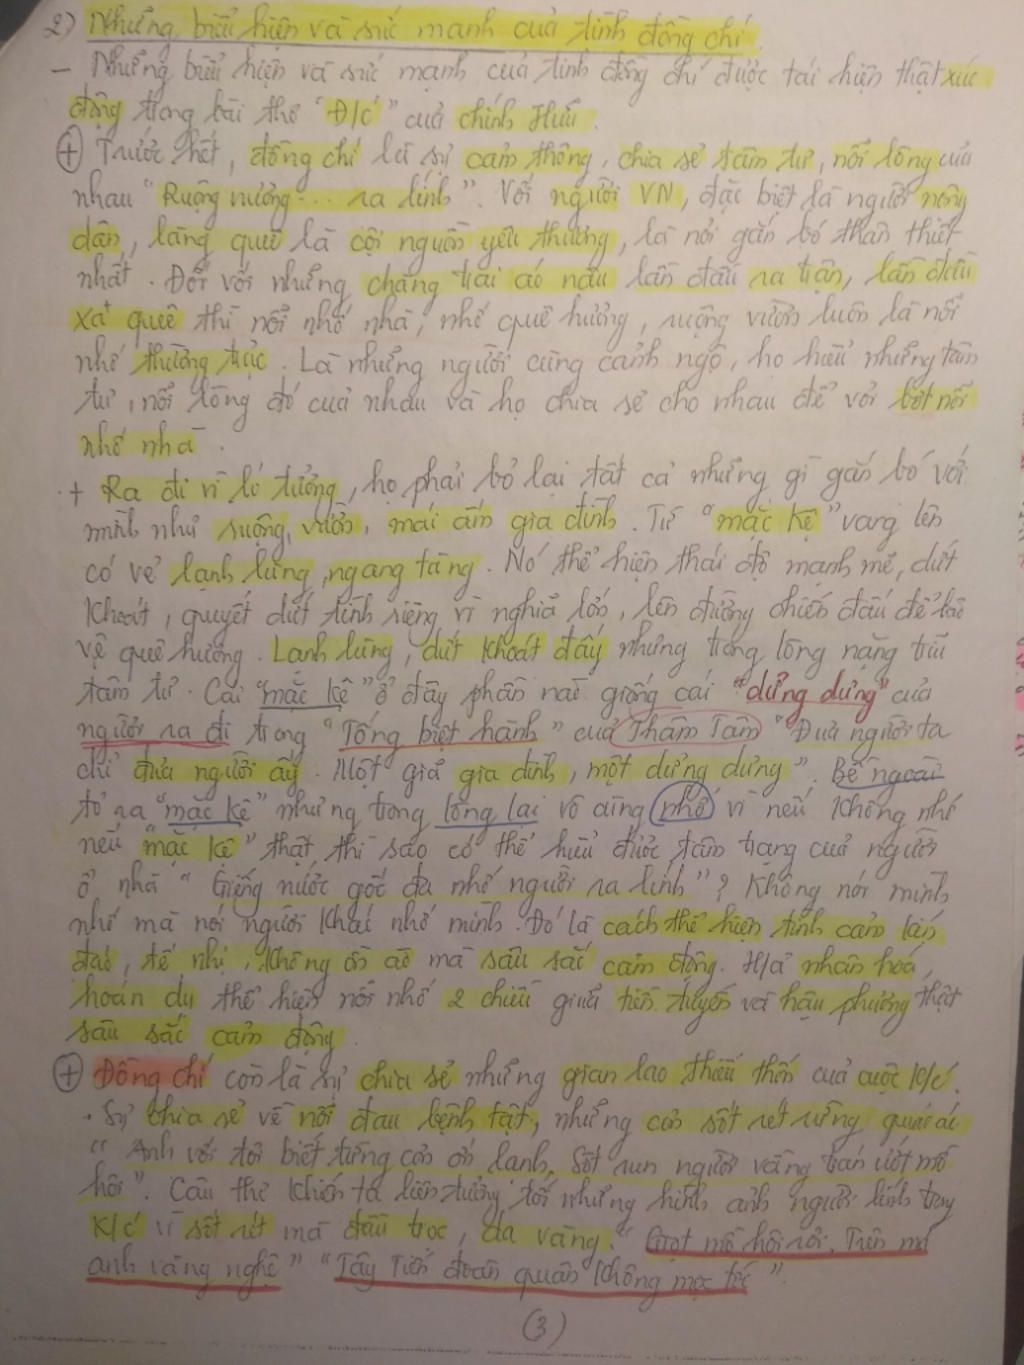 2) Những biểu hiện và sức mạnh của tình đồng chí.
– Những biểu hiện và sức mạnh của tình đồng chí được tái hiện thật xúc
động trong bài thơ "Đ/c" của Chính Hữu.
+ Trước hết, đồng chí là sự cảm thông, chia sẻ tâm tư, nỗi lòng của
nhau "Ruộng nương.... ra lính". Với người VN, đặc biệt là người nông
dân, làng quê là cội nguồn yêu thương, là nơi gắn bó thân thiết
nhất. Đối với những chàng trai áo nâu lần đầu ra trận, lần đầu
xa quê thì nỗi nhớ nhà, nhớ quê hương, ruộng vườn luôn là nỗi
nhớ thường trực. Là những người cùng cảnh ngộ, họ hiểu những tâm
tư, nỗi lòng đó của nhau và họ chia sẻ cho nhau để vơi bớt nỗi
nhớ nhà.
+ Ra đi vì lí tưởng, họ phải bỏ lại tất cả những gì gắn bó với
mình như ruộng, vườn, mái ấm gia đình. Từ "mặc kệ" vang lên
có vẻ lạnh lùng, ngang tàng. Nó thể hiện thái độ mạnh mẽ, dứt
khoát, quyết dứt tình riêng vì nghĩa lớn, lên đường chiến đấu để bảo
vệ quê hương. Lạnh lùng, dứt khoát đấy nhưng trong lòng nặng trĩu
tâm tư. Cái "mặc kệ" ở đây phần nào giống cái "dửng dưng" của
người ra đi trong "Tống biệt hành" của Thâm Tâm "Đưa người ta
chỉ đưa người ấy. Một giã gia đình, một dửng dưng". Bề ngoài
tỏ ra "mặc kệ" nhưng trong lòng lại vô cùng nhớ vì nếu không nhớ
nếu "mặc kệ" thật thì sao có thể hiểu được tâm trạng của người
ở nhà "Giếng nước gốc đa nhớ người ra lính"? Không nói mình
nhớ mà nói người khác nhớ mình. Đó là cách thể hiện tình cảm kín
đáo, tế nhị, không ồn ào mà sâu sắc cảm động. H/ả nhân hoá,
hoán dụ thể hiện nỗi nhớ 2 chiều giữa tiền tuyến và hậu phương thật
sâu sắc cảm động.
+ Đồng chí còn là sự chia sẻ những gian lao thiếu thốn của cuộc k/c.
. Sự chia sẻ về nỗi đau bệnh tật, những cơn sốt rét rừng quái ác
"Anh với tôi biết từng cơn ớn lạnh, Sốt run người vầng trán ướt mồ
hôi". Câu thơ khiến ta liên tưởng tới những hình ảnh người lính trong
k/c vì sốt rét mà đầu trọc, da vàng. "Giọt mồ hôi rơi, Trên má
anh vàng nghệ" "Tây Tiến đoàn quân không mọc tóc".
(3)